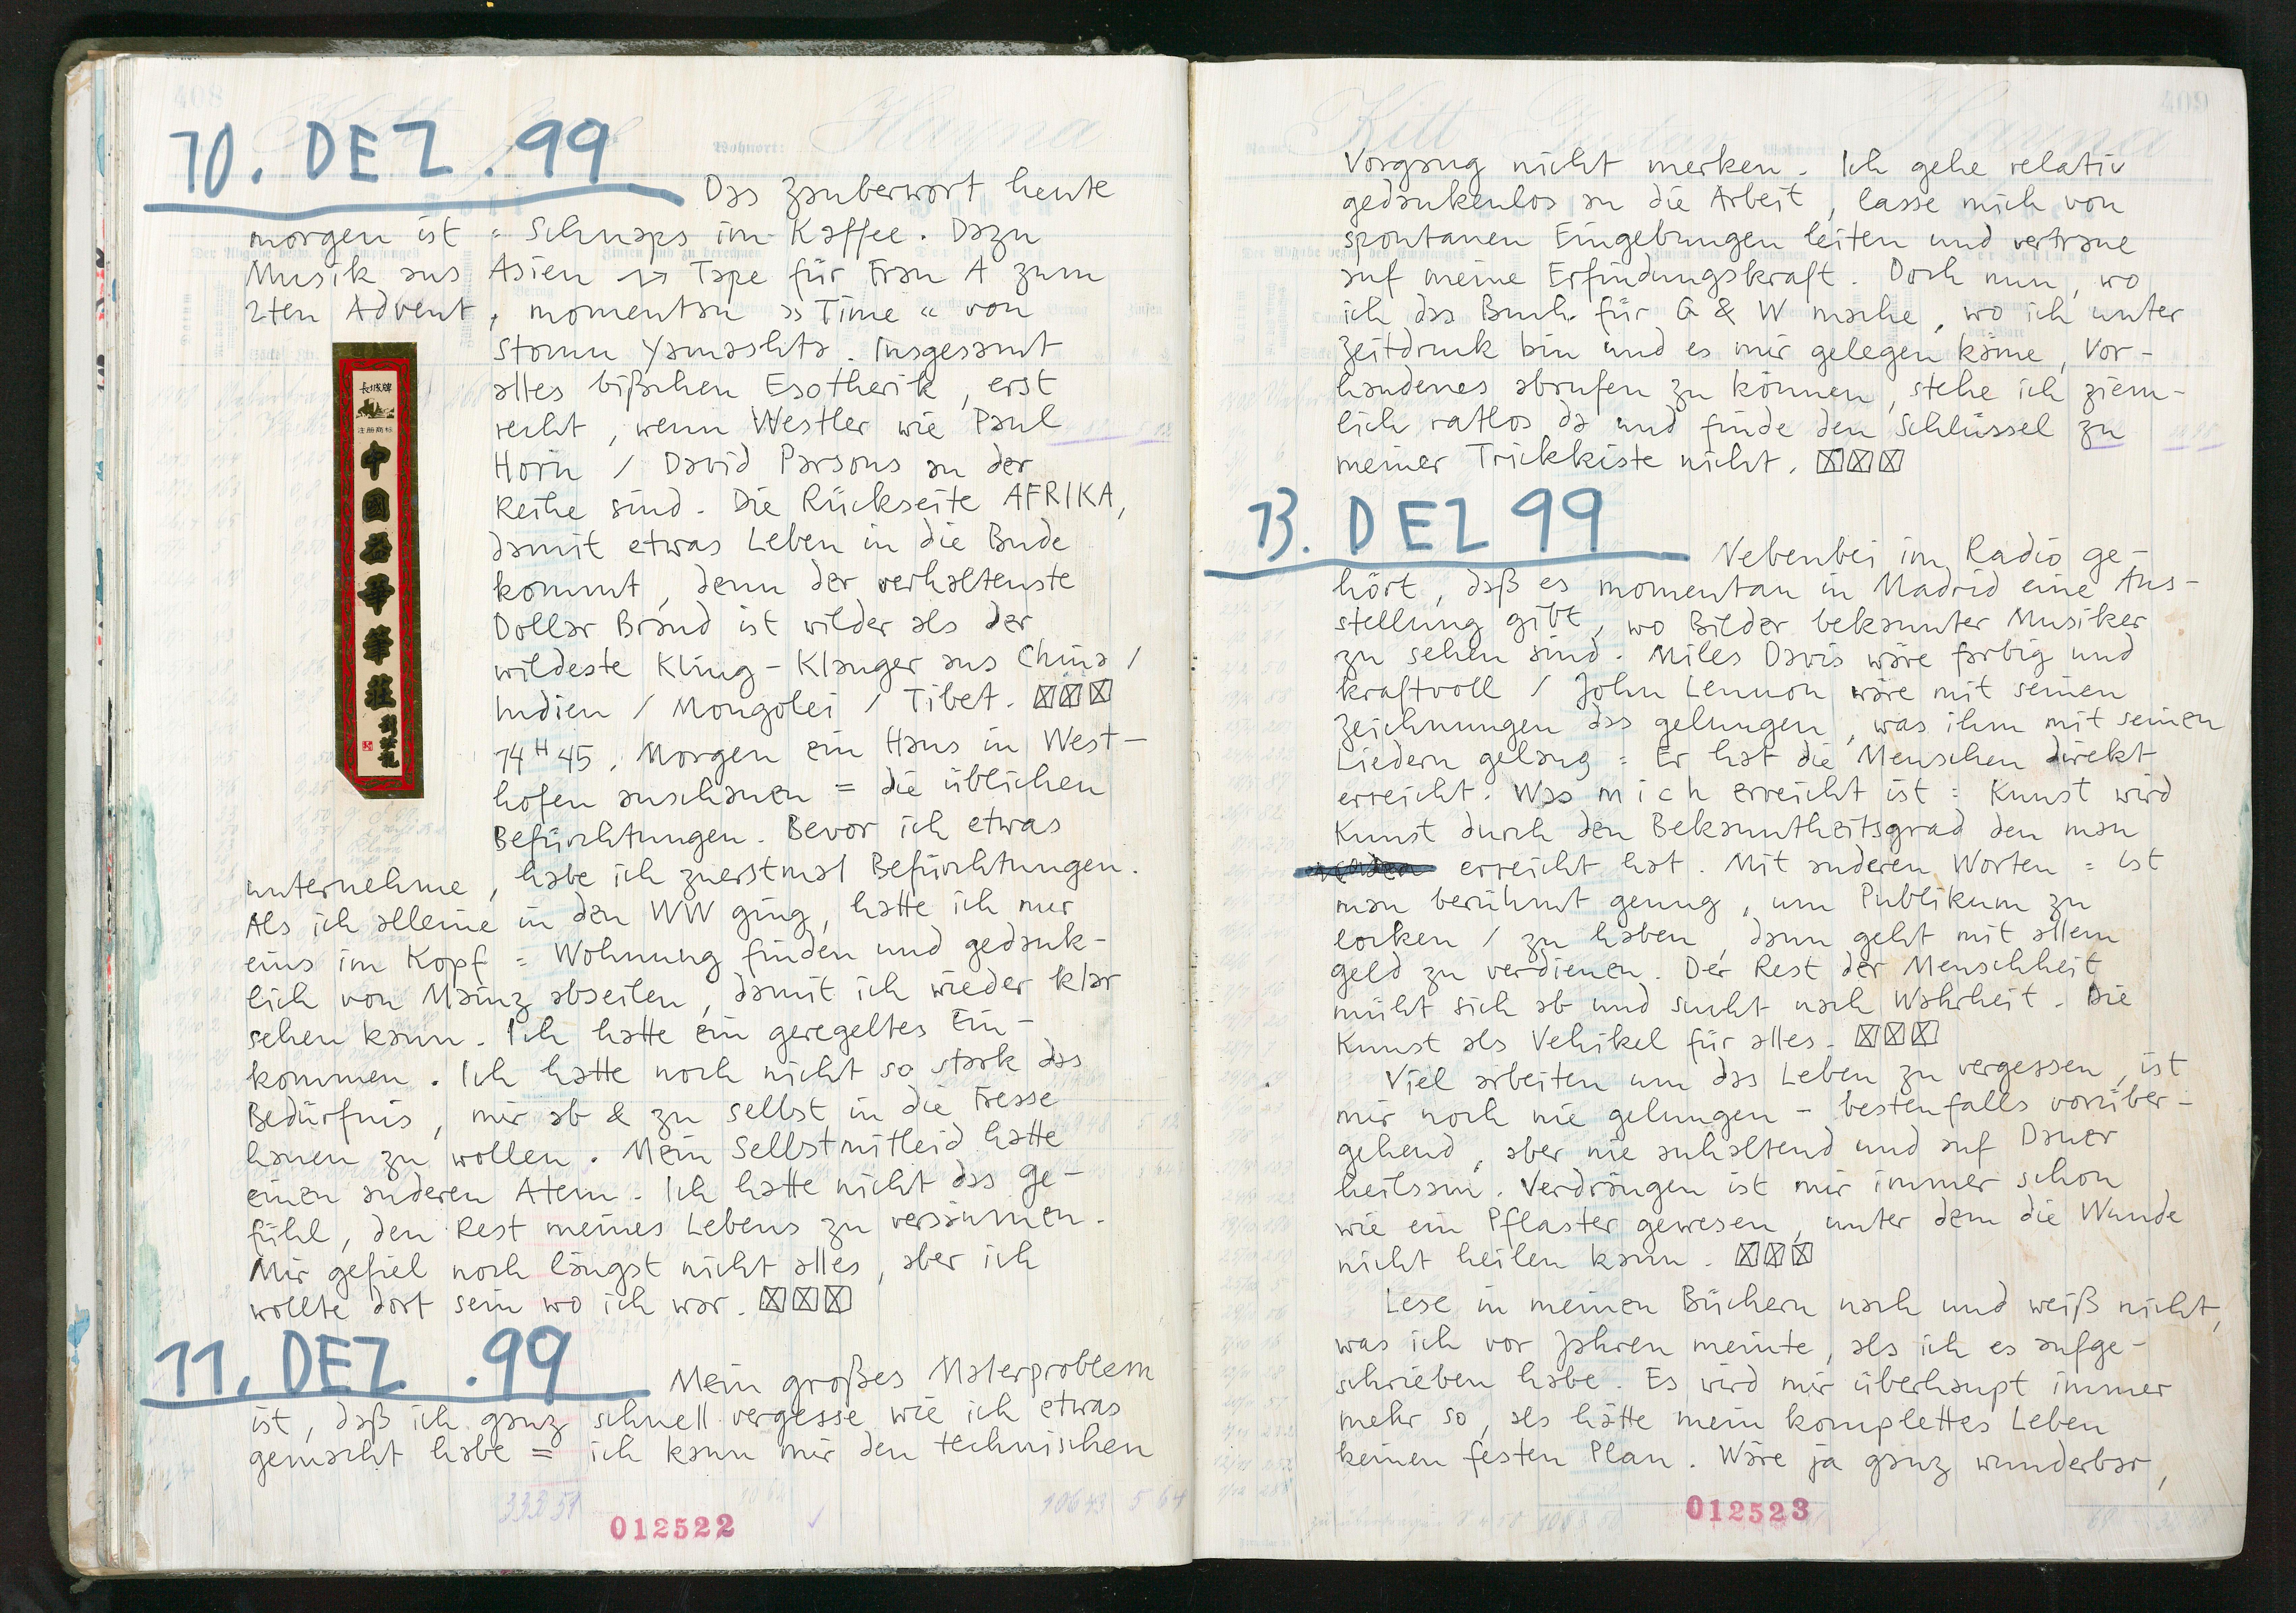 10. DEZ. 99
Das Zauberwort heute
morgen ist = Schnaps im Kaffee. Dazu
Musik aus Asien → Tape für Frau A zum
2ten Advent, momentan »Time« von
Stomu Yamashta. Insgesamt
alles bißchen Esotherik, erst
recht, wenn Westler wie Paul
Horn / David Parsons an der
Reihe sind. Die Rückseite AFRIKA,
damit etwas Leben in die Bude
kommt, denn der verhaltenste
Dollar Brand ist wilder als der
wildeste Kling-Klanger aus China /
Indien / Mongolei / Tibet. ☒☒☒
14H45. Morgen ein Haus in West-
hofen anschauen = die üblichen
Befürchtungen. Bevor ich etwas
unternehme, habe ich zuerstmal Befürchtungen.
Als ich alleine in den WW ging, hatte ich nur
eins im Kopf = Wohnung finden und gedank-
lich von Mainz abseilen, damit ich wieder klar
sehen kann. Ich hatte ein geregeltes Ein-
kommen. Ich hatte noch nicht so stark das
Bedürfnis, mir ab & zu selbst in die Fresse
hauen zu wollen. Mein Selbstmitleid hatte
einen anderen Atem. Ich hatte nicht das Ge-
fühl, den Rest meines Lebens zu versäumen.
Mir gefiel noch längst nicht alles, aber ich
wollte dort sein wo ich war. ☒☒☒
11. DEZ. 99
Mein großes Malerproblem
ist, daß ich ganz schnell vergesse wie ich etwas
gemacht habe = ich kann mir den technischen
012522
長城牌
注册商标
中
國
榮
華
筆
莊
408
Wohnort:
Hayna
Vorgang nicht merken. Ich gehe relativ
gedankenlos an die Arbeit, lasse mich von
spontanen Eingebungen leiten und vertraue
auf meine Erfindungskraft. Doch nun, wo
ich das Buch für G & W mache, wo ich unter
Zeitdruck bin und es mir gelegen käme, Vor-
handenes abrufen zu können, stehe ich ziem-
lich ratlos da und finde den Schlüssel zu
meiner Trickkiste nicht. ☒☒☒
13. DEZ 99
Nebenbei im Radio ge-
hört, daß es momentan in Madrid eine Aus-
stellung gibt, wo Bilder bekannter Musiker
zu sehen sind. Miles Davis wäre farbig und
kraftvoll / John Lennon wäre mit seinen
Zeichnungen das gelungen, was ihm mit seinen
Liedern gelang = Er hat die Menschen direkt
erreicht. Was mich erreicht ist = Kunst wird
Kunst durch den Bekanntheitsgrad den man
erreicht hat. Mit anderen Worten = ist
man berühmt genug, um Publikum zu
locken / zu haben, dann geht mit allem
Geld zu verdienen. Der Rest der Menschheit
müht sich ab und sucht nach Wahrheit. Die
Kunst als Vehikel für alles. ☒☒☒
Viel arbeiten um das Leben zu vergessen, ist
mir noch nie gelungen - bestenfalls vorüber-
gehend, aber nie anhaltend und auf Dauer
heilsam. Verdrängen ist mir immer schon
wie ein Pflaster gewesen, unter dem die Wunde
nicht heilen kann. ☒☒☒
Lese in meinen Büchern nach und weiß nicht,
was ich vor Jahren meinte, als ich es aufge-
schrieben habe. Es wird mir überhaupt immer
mehr so, als hätte mein komplettes Leben
keinen festen Plan. Wäre ja ganz wunderbar,
012523
409
Kitt Gustav Hayna